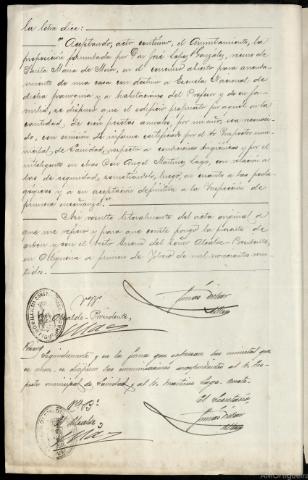 la letra dice:
"Aceptando, acto contínuo, el Ayuntamiento, la
proposición formulada por Don José López González, vecino de
Santa María de Mera, en el concurso abierto para arrenda-
miento de una casa con destino a Escuela Nacional de
dicha parroquia y a habitaciones del Profesor y de su fa-
milia, se dispuso que el edificio propuesto por aquel en la
cantidad de cien pesetas anuales, por
con remisión de informe certificado por el Sr Inspector muni-
cipal, de Sanidad, respecto a condiciones higiénicas y por el
inteligente en obras Don Angel Martínez Lago, con relación a
las de seguridad, sometiéndole, luego, en cuanto a las peda-
gógicas y a su aceptación definitiva a la Inspección de
primera enseñanza."
Así resulta literalmente del acta original a
que me refiero y para que conste pongo la presente de
orden y con el visto bueno del Señor Alcalde-Presidente,
en Ortigueira a primero de de mil novecientos
Vº Bº
Alcalde-Presidente,
Seguidamente y en la forma que expresan dos minutas que
se unen, se dirigen dos comunicaciones respectivamente al Sr Ins-
pector municipal de Sanidad y al Sr Martínez Lago. Conste.
El Secretario
Vº Bº
Alcalde